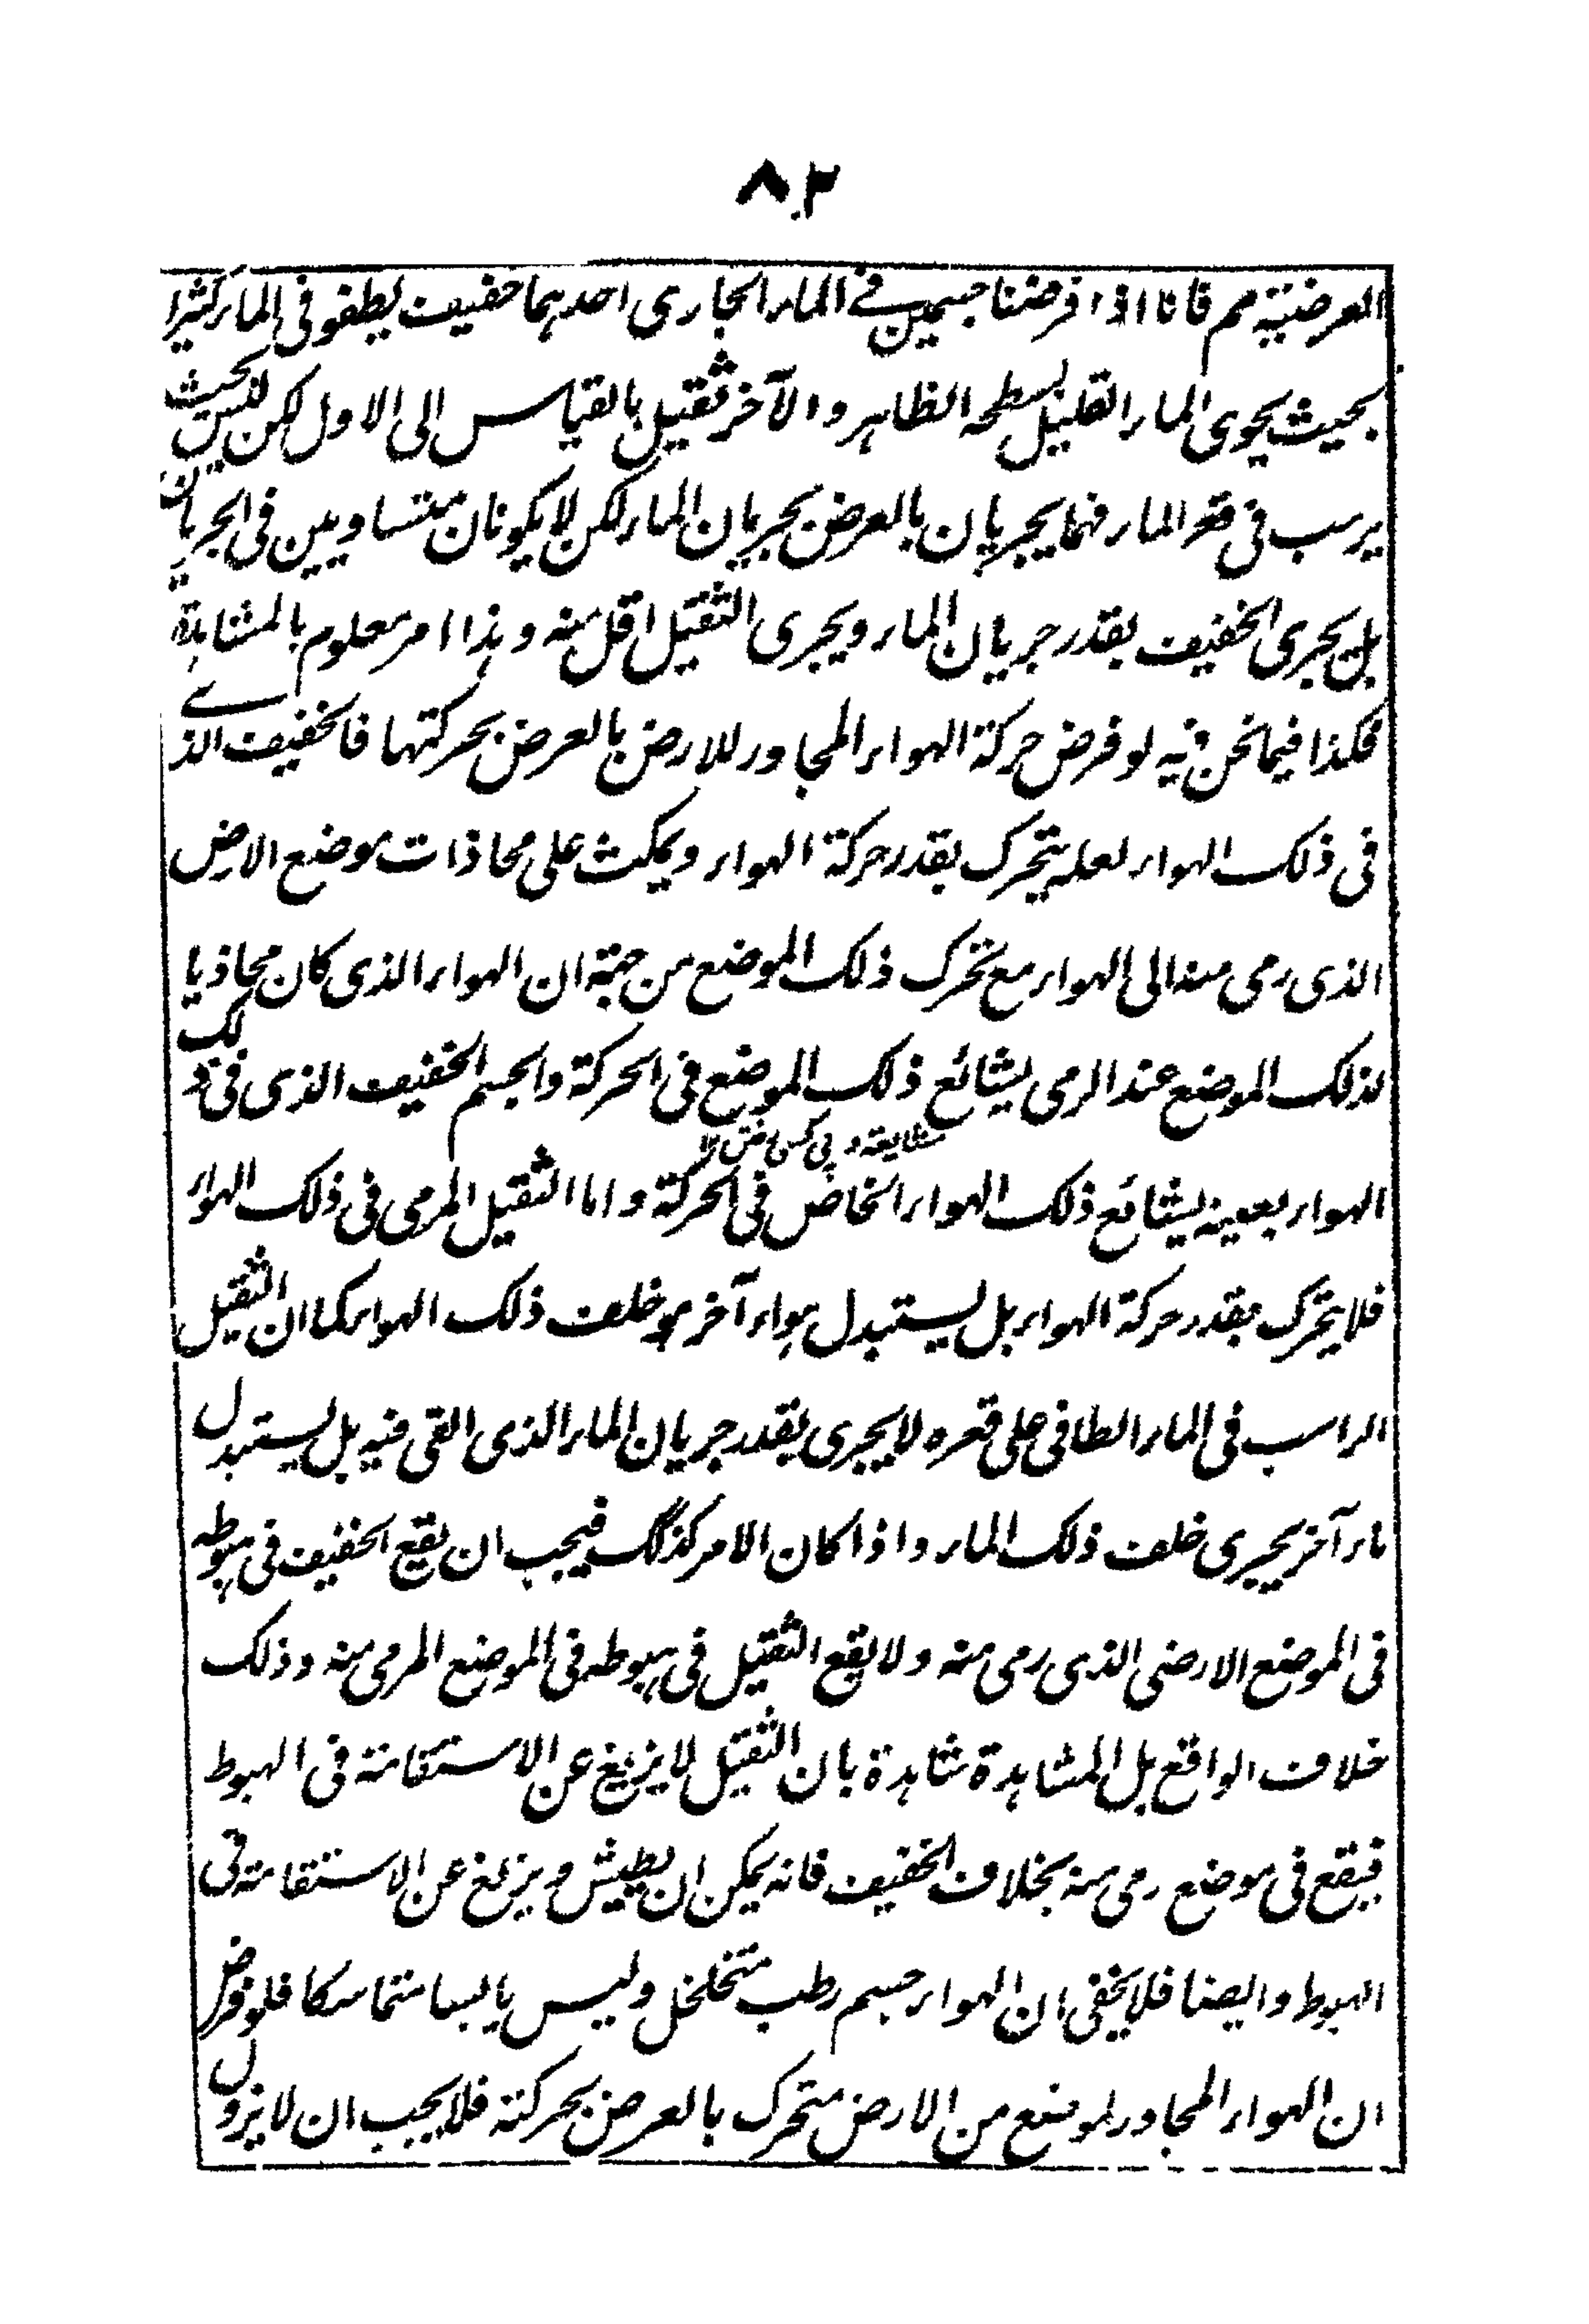 ٨٢
العرضية مم فانا اذا فرضنا جسمين فے الماء الجاری احدہما خفیف یطفو فی الماء کثیرا
بحیث یحوی الماء القلیل بسطحہ الظاہر والآخر ثقیل بالقیاس الی الاول لکن لیس بحیث
یرسب فی قعر الماء فہما یجریان بالعرض بجریان الماء لکن لا یکونان متساویین فی الجریان
بل یجری الخفیف بقدر جریان الماء ویجری الثقیل اقل منہ وہذا امر معلوم بالمشاہدة
فکذا فیما نحن فیہ لو فرض حرکة الہواء المجاور للارض بالعرض بحرکتہا فالخفیف الذے
فی ذلک الہواء لعلہ یتحرک بقدر حرکة الہواء ویمکث علی محاذات موضع الارض
الذی رمی منہ الی الہواء مع تحرک ذلک الموضع من جہة ان الہواء الذی کان محاذیا
لذلک الموضع عند الرمی یشائع ذلک الموضع فی الحرکة والجسم الخفیف الذی فی ذلک
الہواء بعینہ یشائع ذلک الہواء الخاص فی الحرکة واما الثقیل المرمی فی ذلک الہواء
فلا یتحرک بقدر حرکة الہواء بل یستبدل ہواء آخر ہو خلف ذلک الہواء کما ان الثقیل
الراسب فی الماء الطافی علی قعرہ لا یجری بقدر جریان الماء الذی القی فیہ بل یستبدل
ماء آخر یجری خلف ذلک الماء واذا کان الامر کذلک فیجب ان یقع الخفیف فی ہبوطہ
فی الموضع الارضی الذی رمی منہ ولا یقع الثقیل فی ہبوطہ فی الموضع المرمی منہ وذلک
خلاف الواقع بل المشاہدة شاہدة بان الثقیل لا یزیغ عن الاستقامة فی الہبوط
فیقع فی موضع رمی منہ بخلاف الخفیف فانہ یمکن ان یطیش ویزیغ عن الاستقامة فی
الہبوط وایضا فلا یخفی ان الہواء جسم رطب متخلخل ولیس یابسا متماسکا فلو فرض
ان الہواء المجاور لموضع من الارض متحرک بالعرض بحرکتہ فلا یجب ان لا یزول